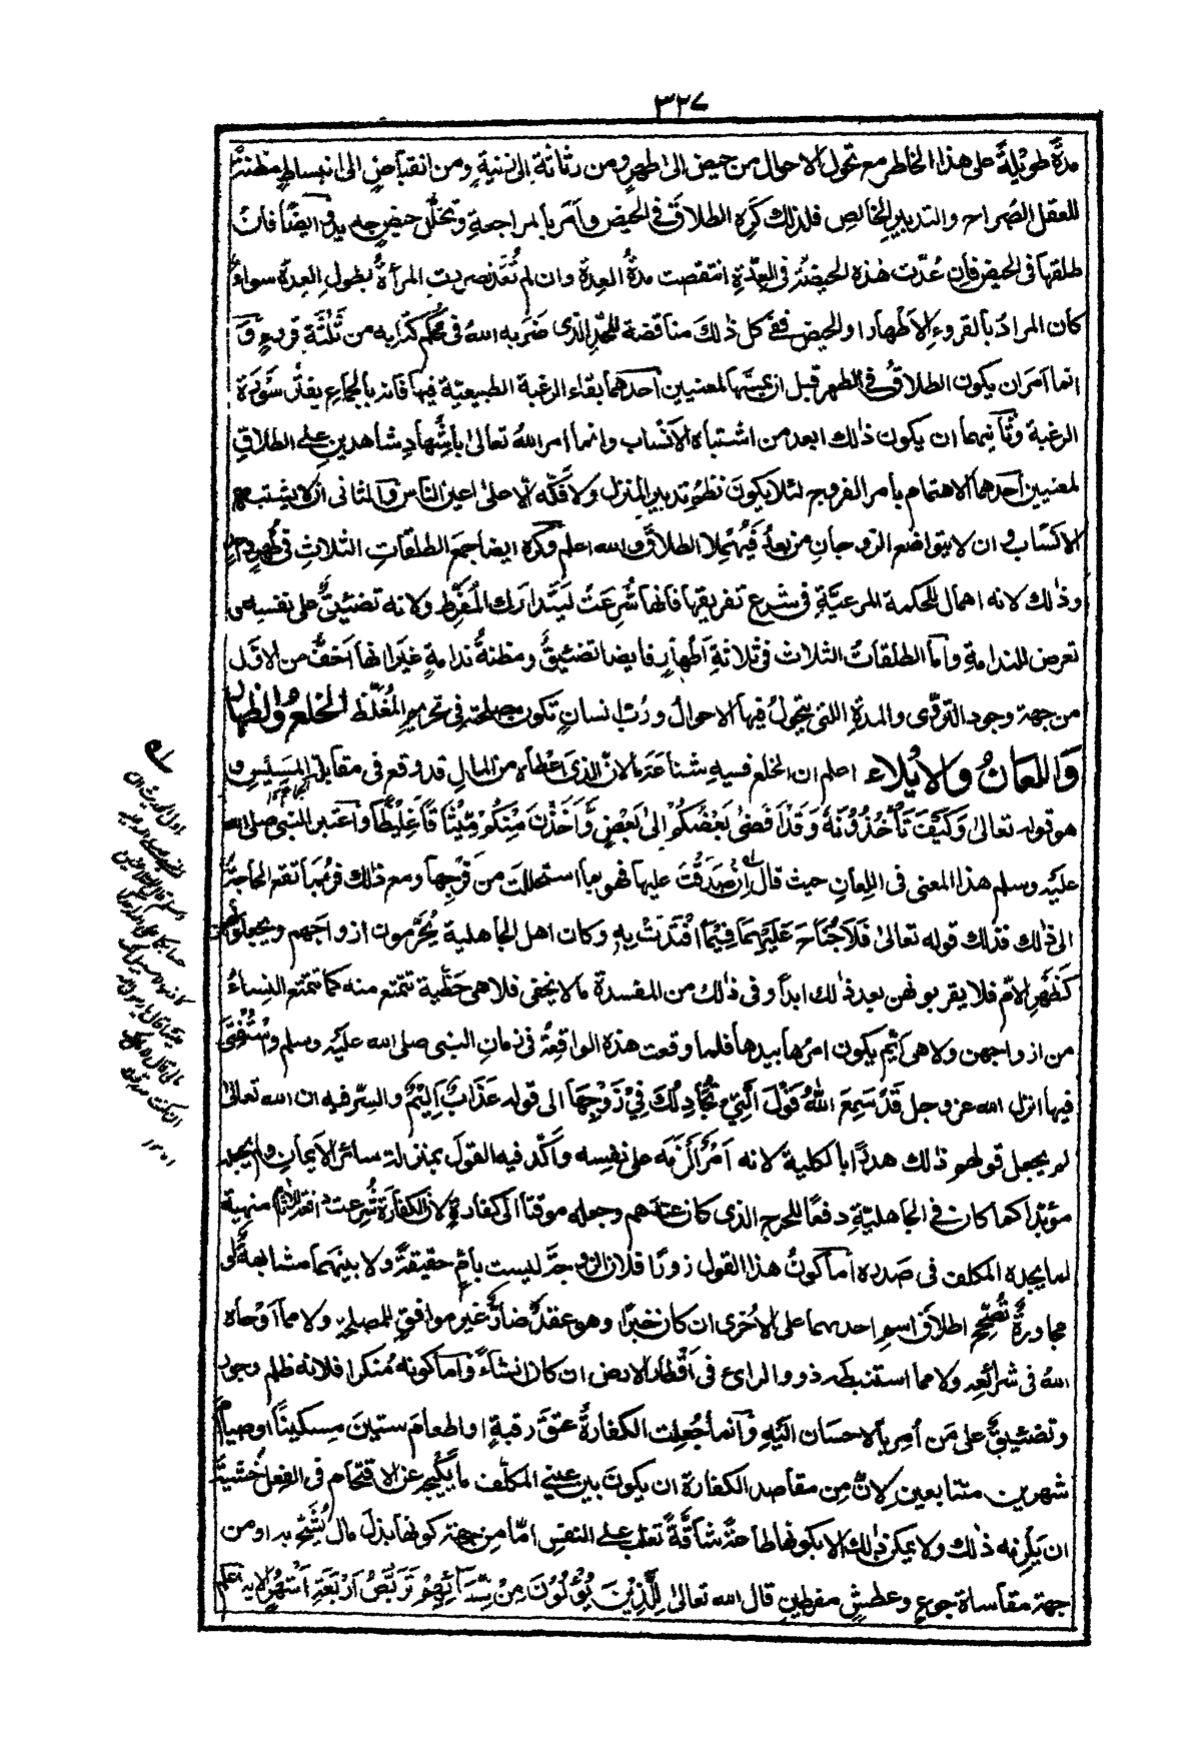 ٣٢٧
مدة طويلة على هذا الخاطر مع تحول الاحوال من حيض الى طهر ومن رثاثة الى زينة ومن انقباض الى انبساط مظنة
للعقل الصراح والتدبير الخالص فلذلك كره الطلاق في الحيض وأمر بالمراجعة وتخلل حيض جديد وايضا فانه
طلقها في الحيض فان عدت هذه الحيضة في العدة انتقصت مدة العدة وان لم تعد تضررت المرأة بطول العدة سواء
كان المراد بالقروء الاطهار او الحيض ففي كل ذلك مناقضة للحد الذي ضربه الله في محكم كتابه من ثلثة قروء و
انما أمر ان يكون الطلاق في الطهر قبل ان يمسها لمعنيين احدهما بقاء الرغبة الطبيعية فيها فانه بالجماع يفتر سورة
الرغبة وثانيهما ان يكون ذلك ابعد من اشتباه الانساب وانما امر الله تعالى باشهاد شاهدين على الطلاق
لمعنيين احدهما الاهتمام بأمر الفروج لئلا يكون نظم تدبير المنزل ولا فكه الا على اعين الناس والثاني ان لا يشتبه
الانساب و ان لا يتواضع الزوجان من بعد فيهملا الطلاق والله اعلم وكره ايضا جمع الطلقات الثلاث في طهر واحد
وذلك لانه اهمال للحكمة المرعية في شرع تفريقها فانها شرعت ليتدارك المفرط ولانه تضييق على نفسه و
تعرض للندامة واما الطلقات الثلاث في ثلاثة أطهار فايضا تضييق ومظنة ندامة غير انها أخف من الاول
من جهة وجود التروى والمدة اللتى يتحول فيها الاحوال ورب انسان تكون مصلحته في تحريم المغلظ الخلع والظهار
واللعان والايلاء اعلم ان الخلع فيه شناعة ما لان الذى اعطاه من المال قد وقع في مقابلة المسيس و
هو قوله تعالى وَكَيْفَ تَأْخُذُونَهُ وَقَدْ أَفْضٰى بَعْضُكُمْ إِلىٰ بَعْضٍ وَّأَخَذْنَ مِنْكُمْ مِّيْثَاقًا غَلِيْظًا واعتبر النبي صلى الله
عليه وسلم هذا المعنى في اللعان حيث قال ان صدقت عليها فهو بما استحللت من فرجها ومع ذلك فربما تقع الحاجة
الى ذلك فذلك قوله تعالى فَلَا جُنَاحَ عَلَيْهِمَا فِيْمَا افْتَدَتْ بِهِ وكان اهل الجاهلية يُحَرِّمون ازواجهم ويجعلونهن
كظهر الام فلا يقربونهن بعد ذلك ابدا و في ذلك من المفسدة ما لا يخفى فلا هى حظية تتمتع منه كما تتمتع النساء
من ازواجهن ولا هى ايم يكون امرها بيدها فلما وقعت هذه الواقعة في زمان النبي صلى الله عليه وسلم واستُفتى
فيها انزل الله عز وجل قَدْ سَمِعَ اللهُ قَوْلَ الَّتِيْ تُجَادِلُكَ فِيْ زَوْجِهَا الى قوله عَذَابٌ أَلِيْمٌ والسر فيه ان الله تعالى
لم يجعل قولهم ذلك هدرا بالكلية لانه أمر ألزمه على نفسه وأكد فيه القول بمنزلة سائر الايمان ولم يجعله
مؤبدا كما كان في الجاهلية دفعًا للحرج الذي كان عندهم وجعله موقتا الى كفارة لان الكفارة شرعت دافعة للآثام منهية
لما يجده المكلف فى صدره اما كون هذا القول زورًا فلان الزوجة ليست بأم حقيقة ولا بينهما مشابهة او
مجاورة تصحح اطلاق اسم احدهما على الاخرى ان كان خبرًا وهو عقد ضار غير موافق للمصلحة ولا مما اوحاه
الله فى شرائعه ولا مما استنبطه ذوو الراى فى أقطار الارض ان كان انشاءً واما كونه منكرا فلانه ظلم وجور
وتضييق على من أمر بالاحسان اليه وانما جُعلت الكفارة عتق رقبة او اطعام ستين مسكينًا او صيام
شهرين متتابعين لان من مقاصد الكفارة ان يكون بين عيني المكلف ما يكبحه عن الاقتحام فى الفعل خشية
ان يلزمه ذلك ولا يمكن ذلك الا بكونها طاعة شاقة تغلب على النفس امّا من جهة كونها بذل مال يُشَحُّ به او من
جهة مقاساة جوع وعطش مفرطين قال الله تعالى لِلَّذِيْنَ يُؤْلُوْنَ مِنْ نِّسَآئِهِمْ تَرَبُّصُ أَرْبَعَةِ أَشْهُرٍ الاية اعلم